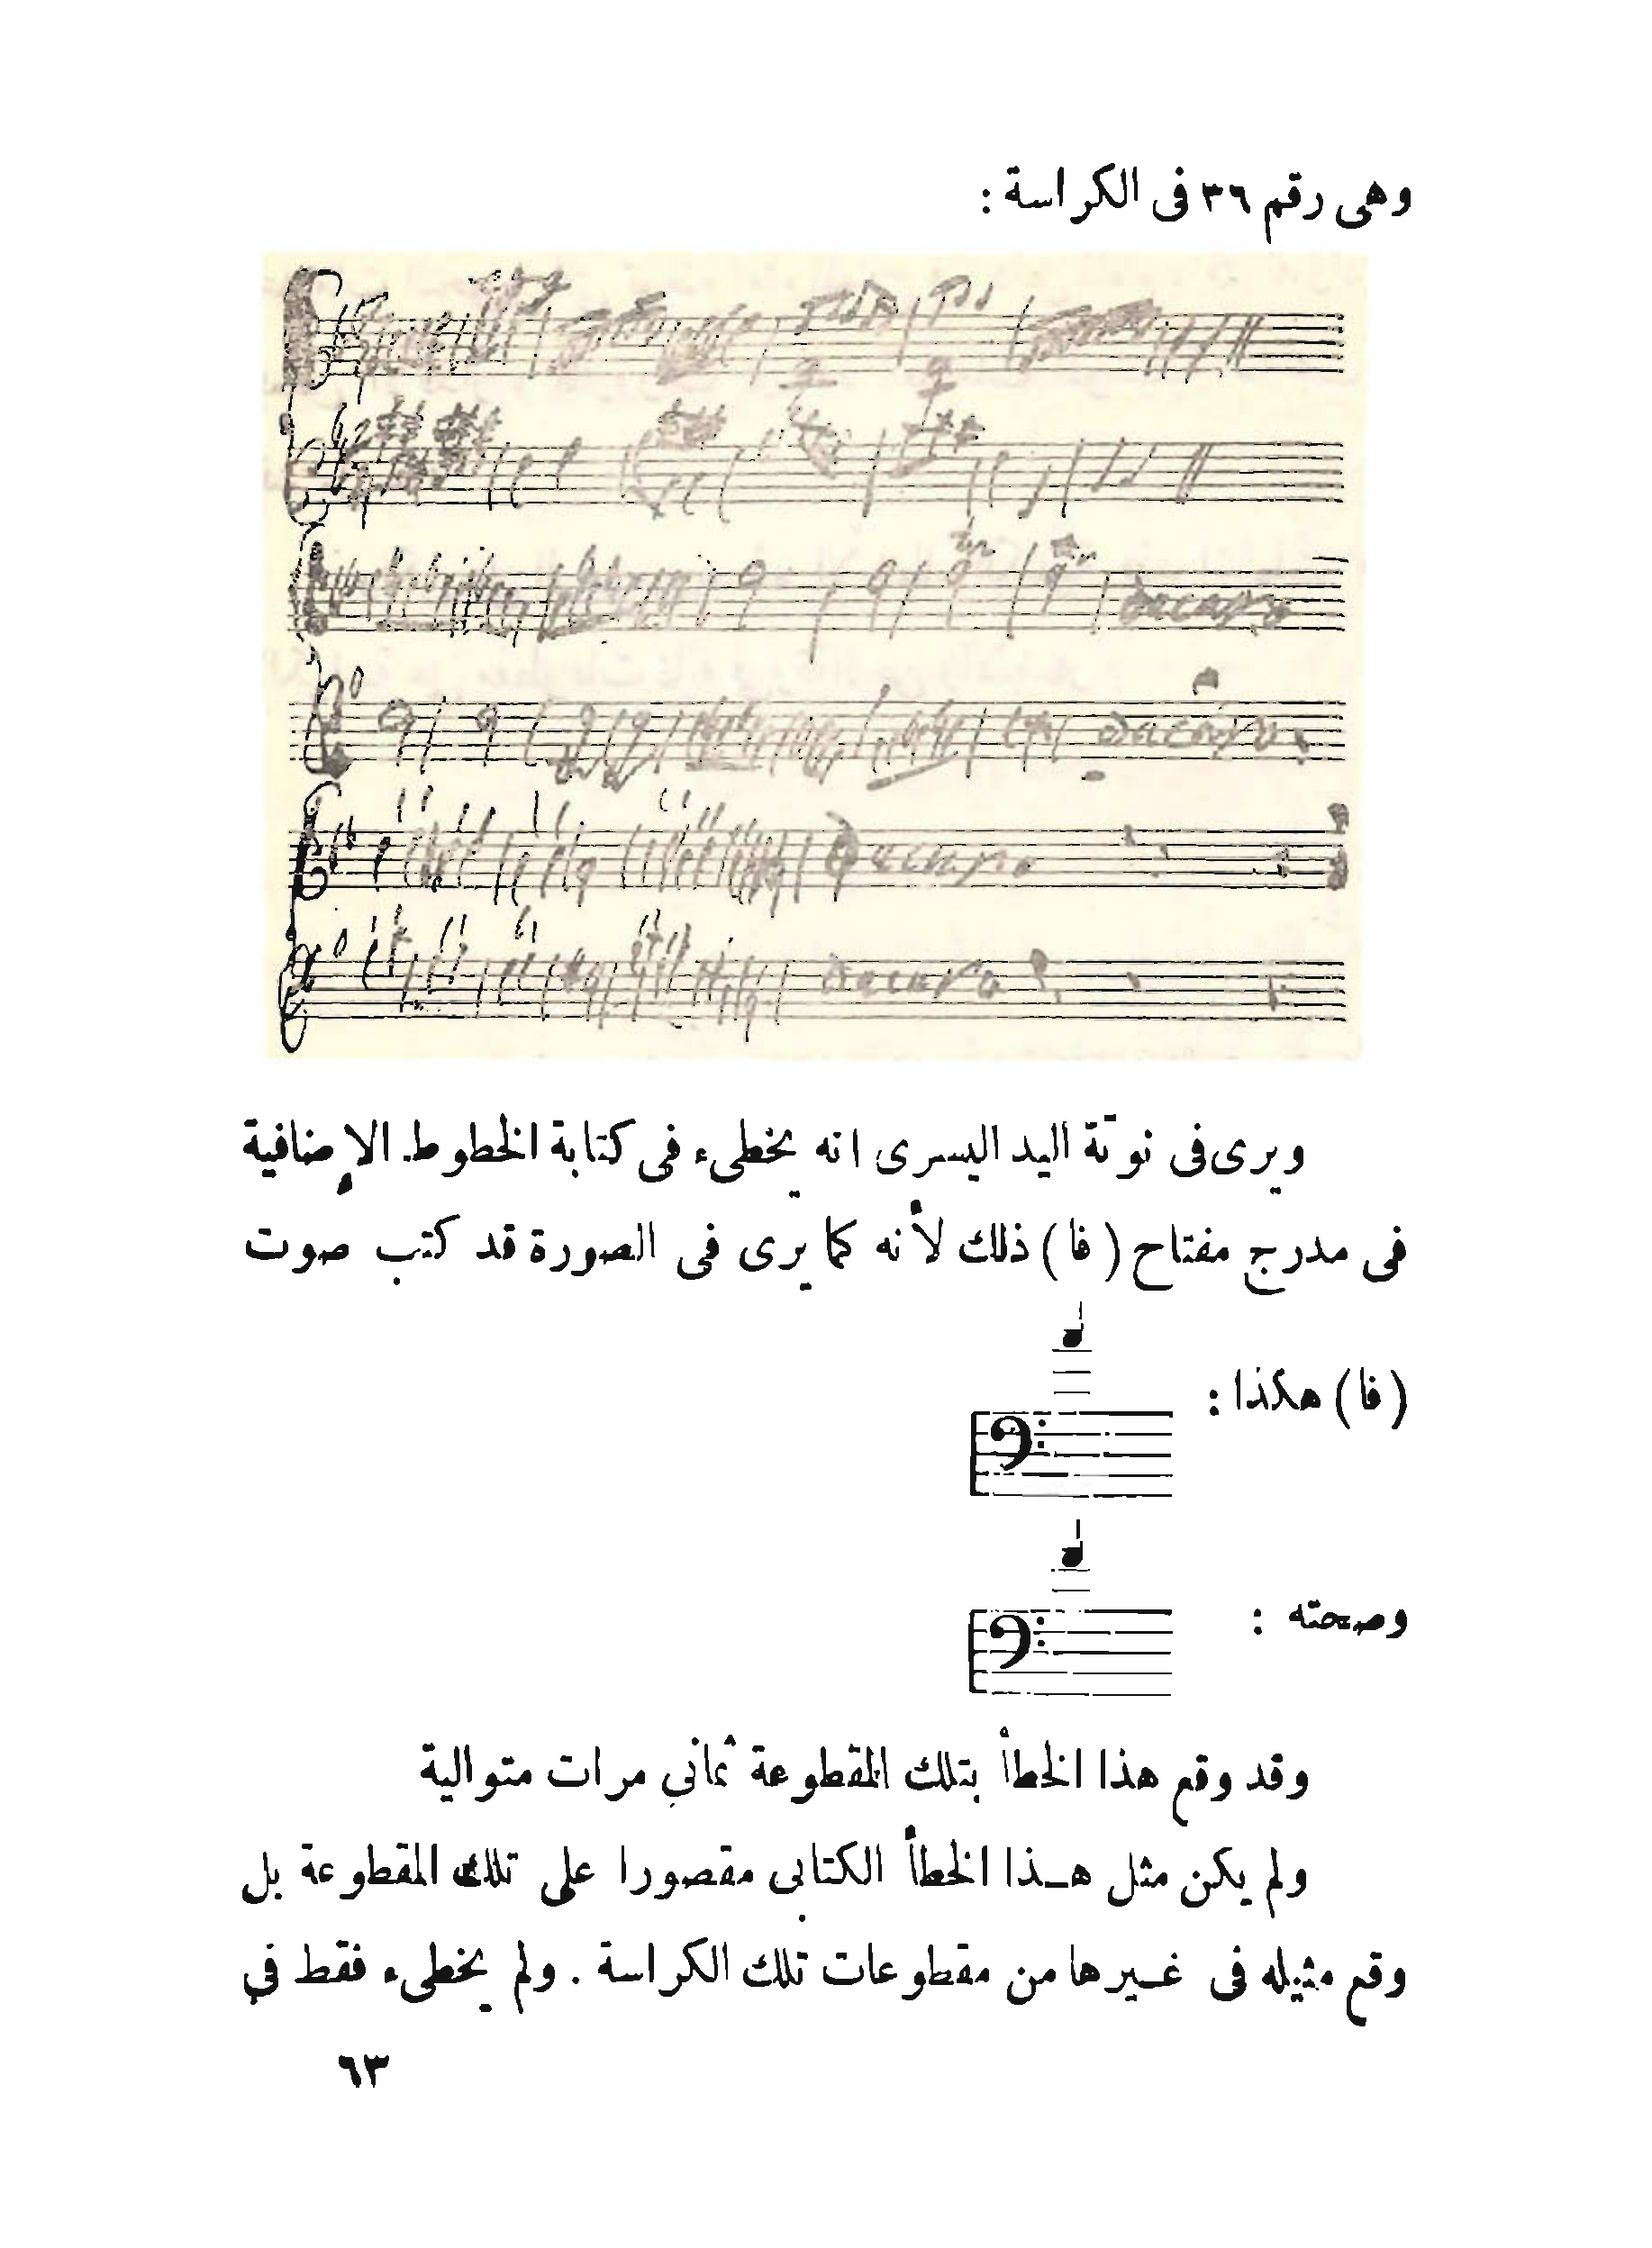 وهى رقم ٣٦ فى الكراسة :
dacapo
dacapo
Dacapo
dacapo
ويرى فى نوتة اليد اليسرى انه يخطىء فى كتابة الخطوط الإضافية
فى مدرج مفتاح ( فا ) ذلك لأنه كما يرى فى الصورة قد كتب صوت
( فا ) هكذا :
وصحته :
وقد وقع هذا الخطأ بتلك المقطوعة ثمانى مرات متوالية
ولم يكن مثل هـذا الخطأ الكتابى مقصورا على تلك المقطوعة بل
وقع مثيله فى غـيرها من مقطوعات تلك الكراسة . ولم يخطىء فقط في
٦٣